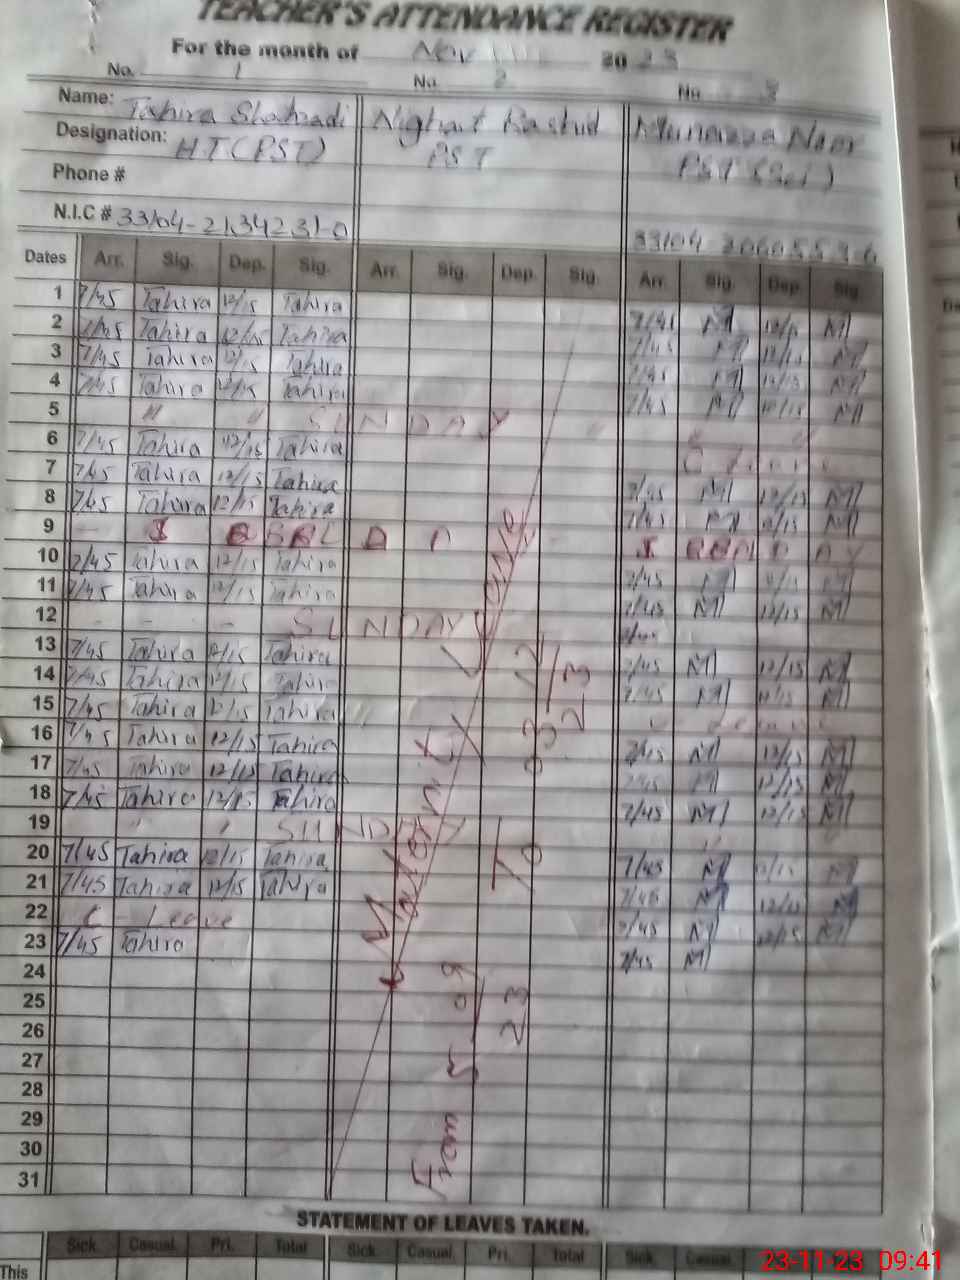 TEACHER'S ATTENDANCE REGISTER
For the month of Nov 2023
No. 1 No. 2 No. 3
Name: Tahira Shahzadi Nighat Rashid Munazza Naer
Designation: HT(PST) PST PST (Sci)
Phone #
N.I.C # 33104-2134231-0 33104-
Dates Arr. Sig. Dep. Sig. Arr. Sig. Dep. Sig. Arr. Sig. Dep. Sig.
1 7/45 Tahira 12/15 Tahira
2 7/45 Tahira 12/15 Tahira 7/45 M 12/15 M
3 7/45 Tahira 12/15 Tahira 7/45 M 12/15 M
4 7/45 Tahira 12/15 Tahira 7/45 M 12/15 M
5 " " SUNDAY "
6 7/45 Tahira 12/15 Tahira
7 7/45 Tahira 12/15 Tahira 7/45 M 12/15 M
8 7/45 Tahira 12/15 Tahira 7/45 M 12/15 M
9
10 7/45 Tahira 12/15 Tahira 7/45 M 12/15 M
11 7/45 Tahira 12/15 Tahira 7/45 M 12/15 M
12 - - - SUNDAY
13 7/45 Tahira 12/15 Tahira 7/45 M 12/15 M
14 7/45 Tahira 12/15 Tahira 7/45 M 12/15 M
15 7/45 Tahira 12/15 Tahira
16 7/45 Tahira 12/15 Tahira 7/45 M 12/15 M
17 7/45 Tahira 12/15 Tahira 7/45 M 12/15 M
18 7/45 Tahira 12/15 Tahira 7/45 M 12/15 M
19 " " SUNDAY
20 7/45 Tahira 12/15 Tahira 7/45 M 12/15 M
21 7/45 Tahira 12/15 Tahira 7/45 M 12/15 M
22 C - Leave 7/45 M 12/15 M
23 7/45 Tahira 7/45 M
24
25
26
27
28
29
30
31
Maternity Leave
From 5-09-23 To 03-12-23
STATEMENT OF LEAVES TAKEN.
Sick. Casual. Pri. Total Sick. Casual. Pri. Total Sick. Casual.
This
23-11-23 09:41